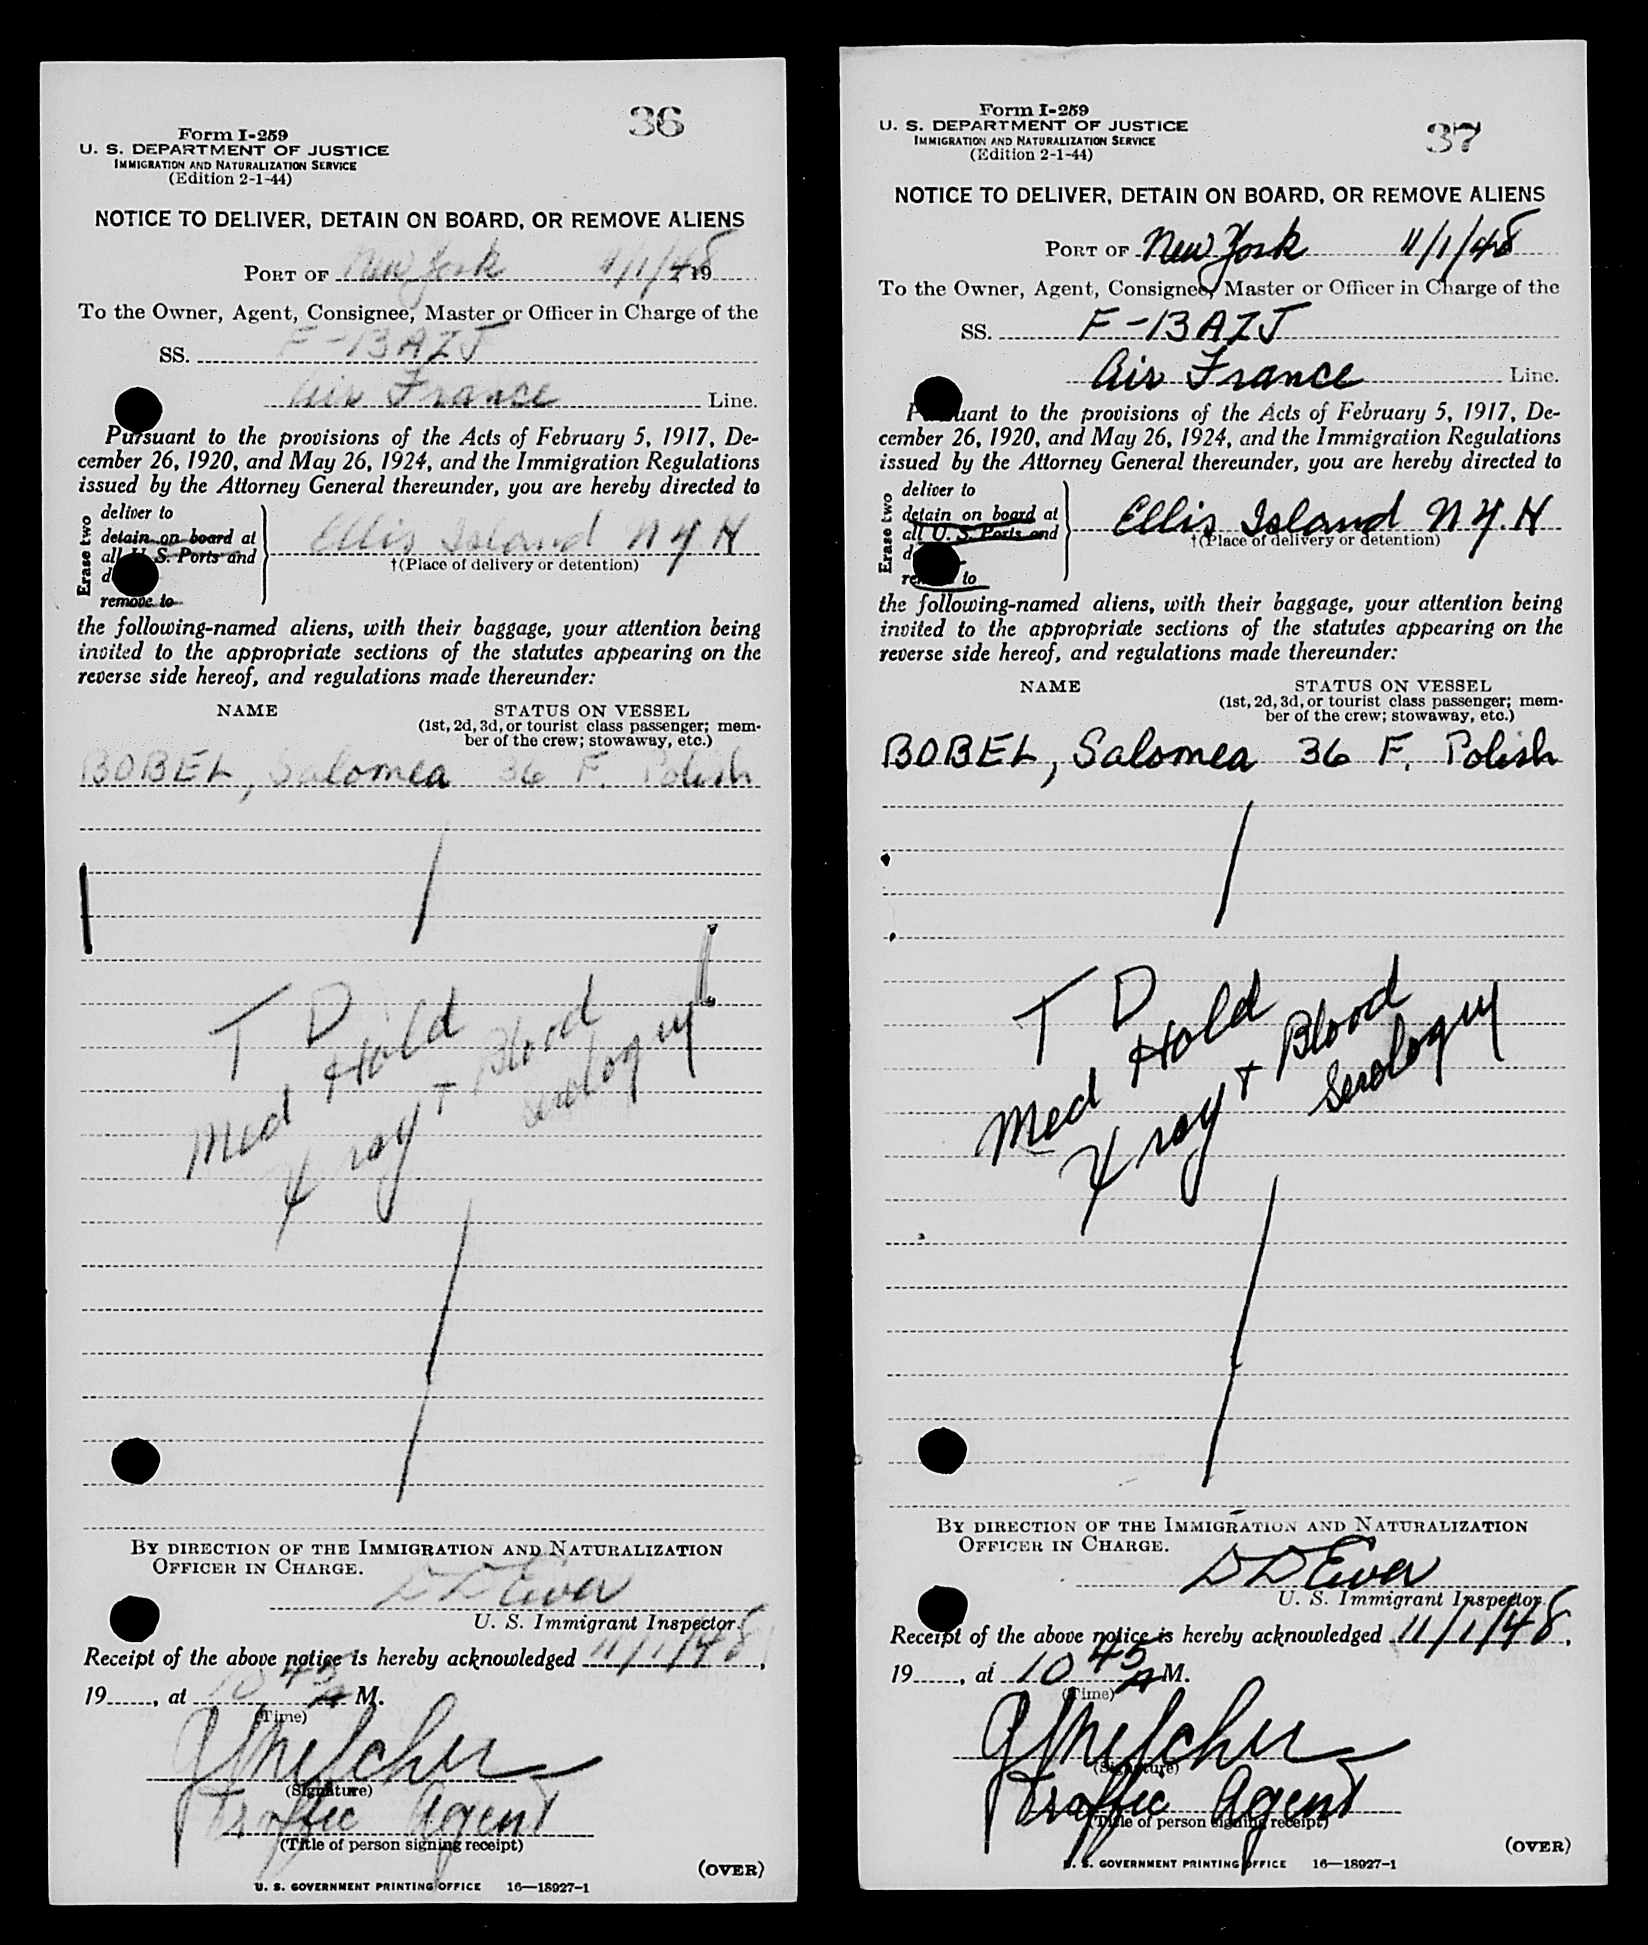 36
Form I-259
U. S. DEPARTMENT OF JUSTICE
IMMIGRATION AND NATURALIZATION SERVICE
(Edition 2-1-44)
NOTICE TO DELIVER, DETAIN ON BOARD, OR REMOVE ALIENS
PORT OF New York 11/1/48 19
To the Owner, Agent, Consignee, Master or Officer in Charge of the
SS. F-BAZJ
Air France Line.
Pursuant to the provisions of the Acts of February 5, 1917, De-
cember 26, 1920, and May 26, 1924, and the Immigration Regulations
issued by the Attorney General thereunder, you are hereby directed to
Erase two
deliver to
detain on board at
all U. S. Ports and
remove to
Ellis Island N Y. H
†(Place of delivery or detention)
the following-named aliens, with their baggage, your attention being
invited to the appropriate sections of the statutes appearing on the
reverse side hereof, and regulations made thereunder:
NAME STATUS ON VESSEL
(1st, 2d, 3d, or tourist class passenger; mem-
ber of the crew; stowaway, etc.)
BOBEL, Salomea 36 F. Polish
T D
Med Hold
X ray + Blood
Serology
BY DIRECTION OF THE IMMIGRATION AND NATURALIZATION
OFFICER IN CHARGE.
U. S. Immigrant Inspector.
Receipt of the above notice is hereby acknowledged 11/1/48,
19, at 10 45 A M.
(Time)
(Signature)
Traffic Agent
(Title of person signing receipt)
(OVER)
U. S. GOVERNMENT PRINTING OFFICE 16—18927-1
37
Form I-259
U. S. DEPARTMENT OF JUSTICE
IMMIGRATION AND NATURALIZATION SERVICE
(Edition 2-1-44)
NOTICE TO DELIVER, DETAIN ON BOARD, OR REMOVE ALIENS
PORT OF New York 11/1/48
To the Owner, Agent, Consignee, Master or Officer in Charge of the
SS. F-BAZJ
Air France Line.
Pursuant to the provisions of the Acts of February 5, 1917, De-
cember 26, 1920, and May 26, 1924, and the Immigration Regulations
issued by the Attorney General thereunder, you are hereby directed to
Erase two
deliver to
detain on board at
all U. S. Ports and
remove to
Ellis Island N Y. H
†(Place of delivery or detention)
the following-named aliens, with their baggage, your attention being
invited to the appropriate sections of the statutes appearing on the
reverse side hereof, and regulations made thereunder:
NAME STATUS ON VESSEL
(1st, 2d, 3d, or tourist class passenger; mem-
ber of the crew; stowaway, etc.)
BOBEL, Salomea 36 F. Polish
T D
Med Hold
X ray + Blood
Serology
BY DIRECTION OF THE IMMIGRATION AND NATURALIZATION
OFFICER IN CHARGE.
U. S. Immigrant Inspector.
Receipt of the above notice is hereby acknowledged 11/1/48,
19, at 10 45 A M.
(Time)
(Signature)
Traffic Agent
(Title of person signing receipt)
(OVER)
U. S. GOVERNMENT PRINTING OFFICE 16—18927-1